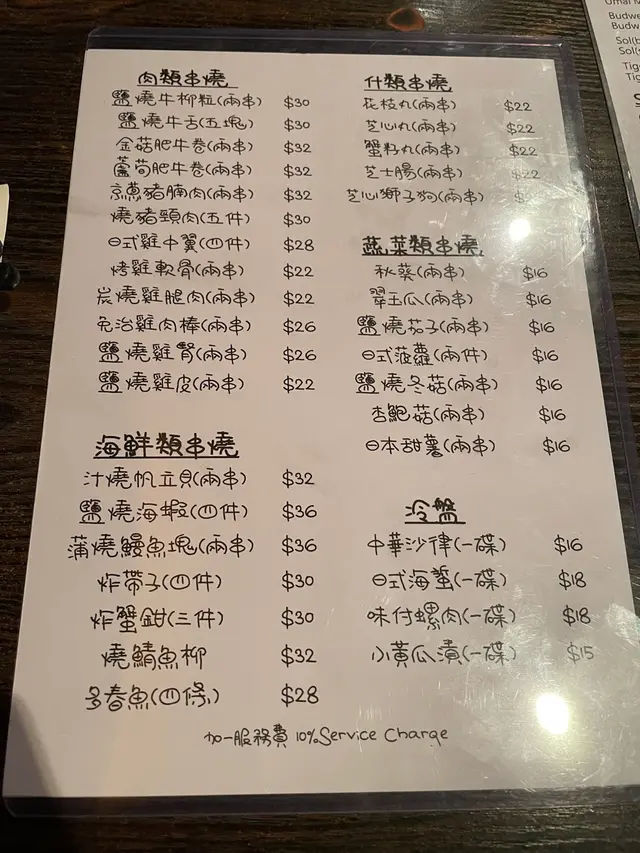 肉類串燒
鹽燒牛柳粒(兩串) $30
鹽燒牛舌(五塊) $30
金菇肥牛卷(兩串) $32
蘆筍肥牛卷(兩串) $32
京蔥豬腩肉(兩串) $32
燒豬頸肉(五件) $30
日式雞中翼(四件) $28
烤雞軟骨(兩串) $22
炭燒雞腿肉(兩串) $22
免治雞肉棒(兩串) $26
鹽燒雞腎(兩串) $26
鹽燒雞皮(兩串) $22
海鮮類串燒
汁燒帆立貝(兩串) $32
鹽燒海蝦(四件) $36
蒲燒鰻魚塊(兩串) $36
炸帶子(四件) $30
炸蟹鉗(三件) $30
燒鯖魚柳 $32
多春魚(四條) $28
什類串燒
花枝丸(兩串) $22
芝心丸(兩串) $22
蟹籽丸(兩串) $22
芝士腸(兩串) $22
芝心獅子狗(兩串) $
蔬菜類串燒
秋葵(兩串) $16
翠玉瓜(兩串) $16
鹽燒茄子(兩串) $16
日式菠蘿(兩件) $16
鹽燒冬菇(兩串) $16
杏鮑菇(兩串) $16
日本甜薯(兩串) $16
冷盤
中華沙律(一碟) $16
日式海蜇(一碟) $18
味付螺肉(一碟) $18
小黃瓜漬(一碟) $15
加一服務費 10% Service Charge
Budwe
Budw
Sol(b
Sol(
Tig
Tig